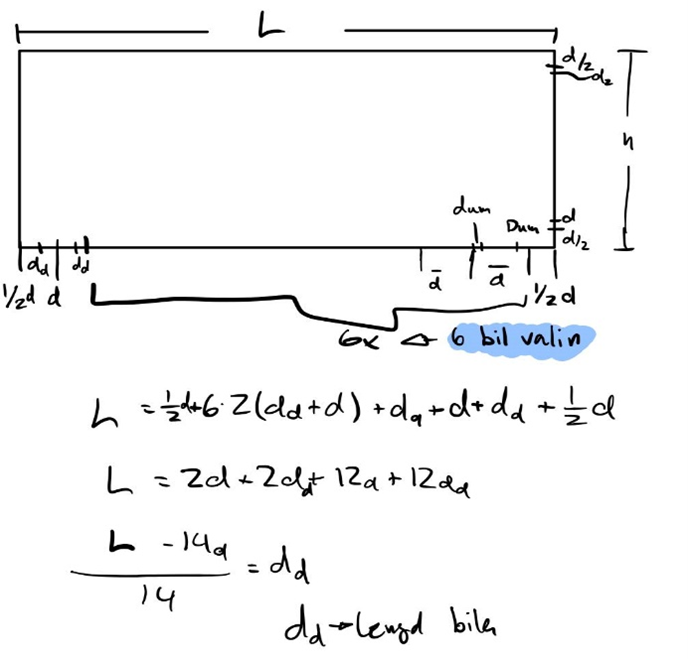 L
d/2
d₂
h
dum
Dum
d
d/2
d_d
d_d
d̄
d̄
1/2d d
1/2d
6x ← 6 bil valin
L = 1/2d+6·2(d_d+d) + d_d + d + d_d + 1/2 d
L = 2d + 2d_d + 12d + 12d_d
(L - 14d)/14 = d_d
d_d → lengd bila